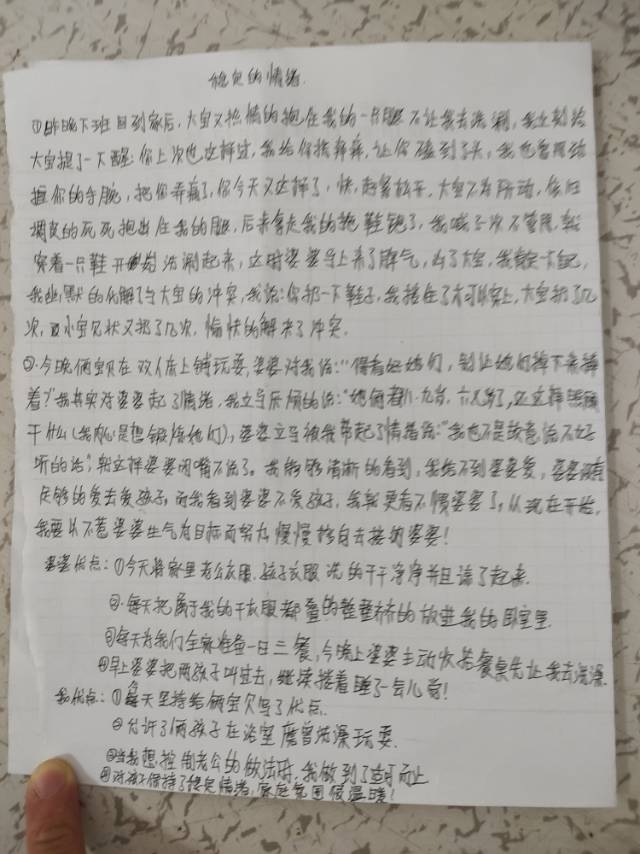 稳定的情绪
①昨晚下班回到家后,大宝又热情的抱住我的一只腿不让我去洗涮,我立刻给
大宝提了一下醒:你上次也这样过,我给你挨痒痒,让你磕到了头,我也曾用劲
握你的手腕,把你弄痛了,你今天又这样了,快,赶紧松开,大宝不为所动,依旧
调皮的死死抱出住我的腿,后来拿走我的拖鞋跑了,我喊了次不管用,就
穿着一只鞋开始洗涮起来,这时婆婆马上来了脾气,凶了大宝,我
我幽默的化解了与大宝的冲突,我说:你扔一下鞋子,我接住了才可以穿上,大宝扔了几
次,小宝见状又扔了几次,愉快的解决了冲突。
②今晚俩宝贝在双人床上铺玩耍,婆婆对我说:“得看好她们,别让她们掉下来摔
着?”我其实对婆婆起了情绪,我立马乐烦的说:“她俩都八、九岁,六、七岁了,还这样照顾
干什么(我初心是想锻炼她们),婆婆立马被我带起了情绪说:“我也不是故意说不好
听的话”,就这样婆婆闭嘴不说了。我能够清晰的看到,我给不到婆婆爱,婆婆没有
足够的爱去爱孩子,而我看到婆婆不爱孩子,我就更看不惯婆婆了,从现在开始,
我要从不惹婆婆生气为目标而努力,慢慢移自去接纳婆婆!
婆婆优点:①今天将家里老公衣服、孩子衣服洗的干干净净并且晾了起来.
②每天把属于我的干衣服都叠的整整齐齐的放进我的卧室里.
③每天为我们全家准备一日三餐,今晚上婆婆主动收拾餐桌先让我去洗澡.
④早上婆婆把两孩子叫过去,继续搂着睡了一会儿觉!
我优点:①每天坚持给俩宝贝写了优点.
②允许了俩孩子在浴室磨曾洗澡玩耍.
③当我想控制老公的做法时,我做到了适可而止
④对孩子保持了稳定情绪,家庭氛围很温暖!